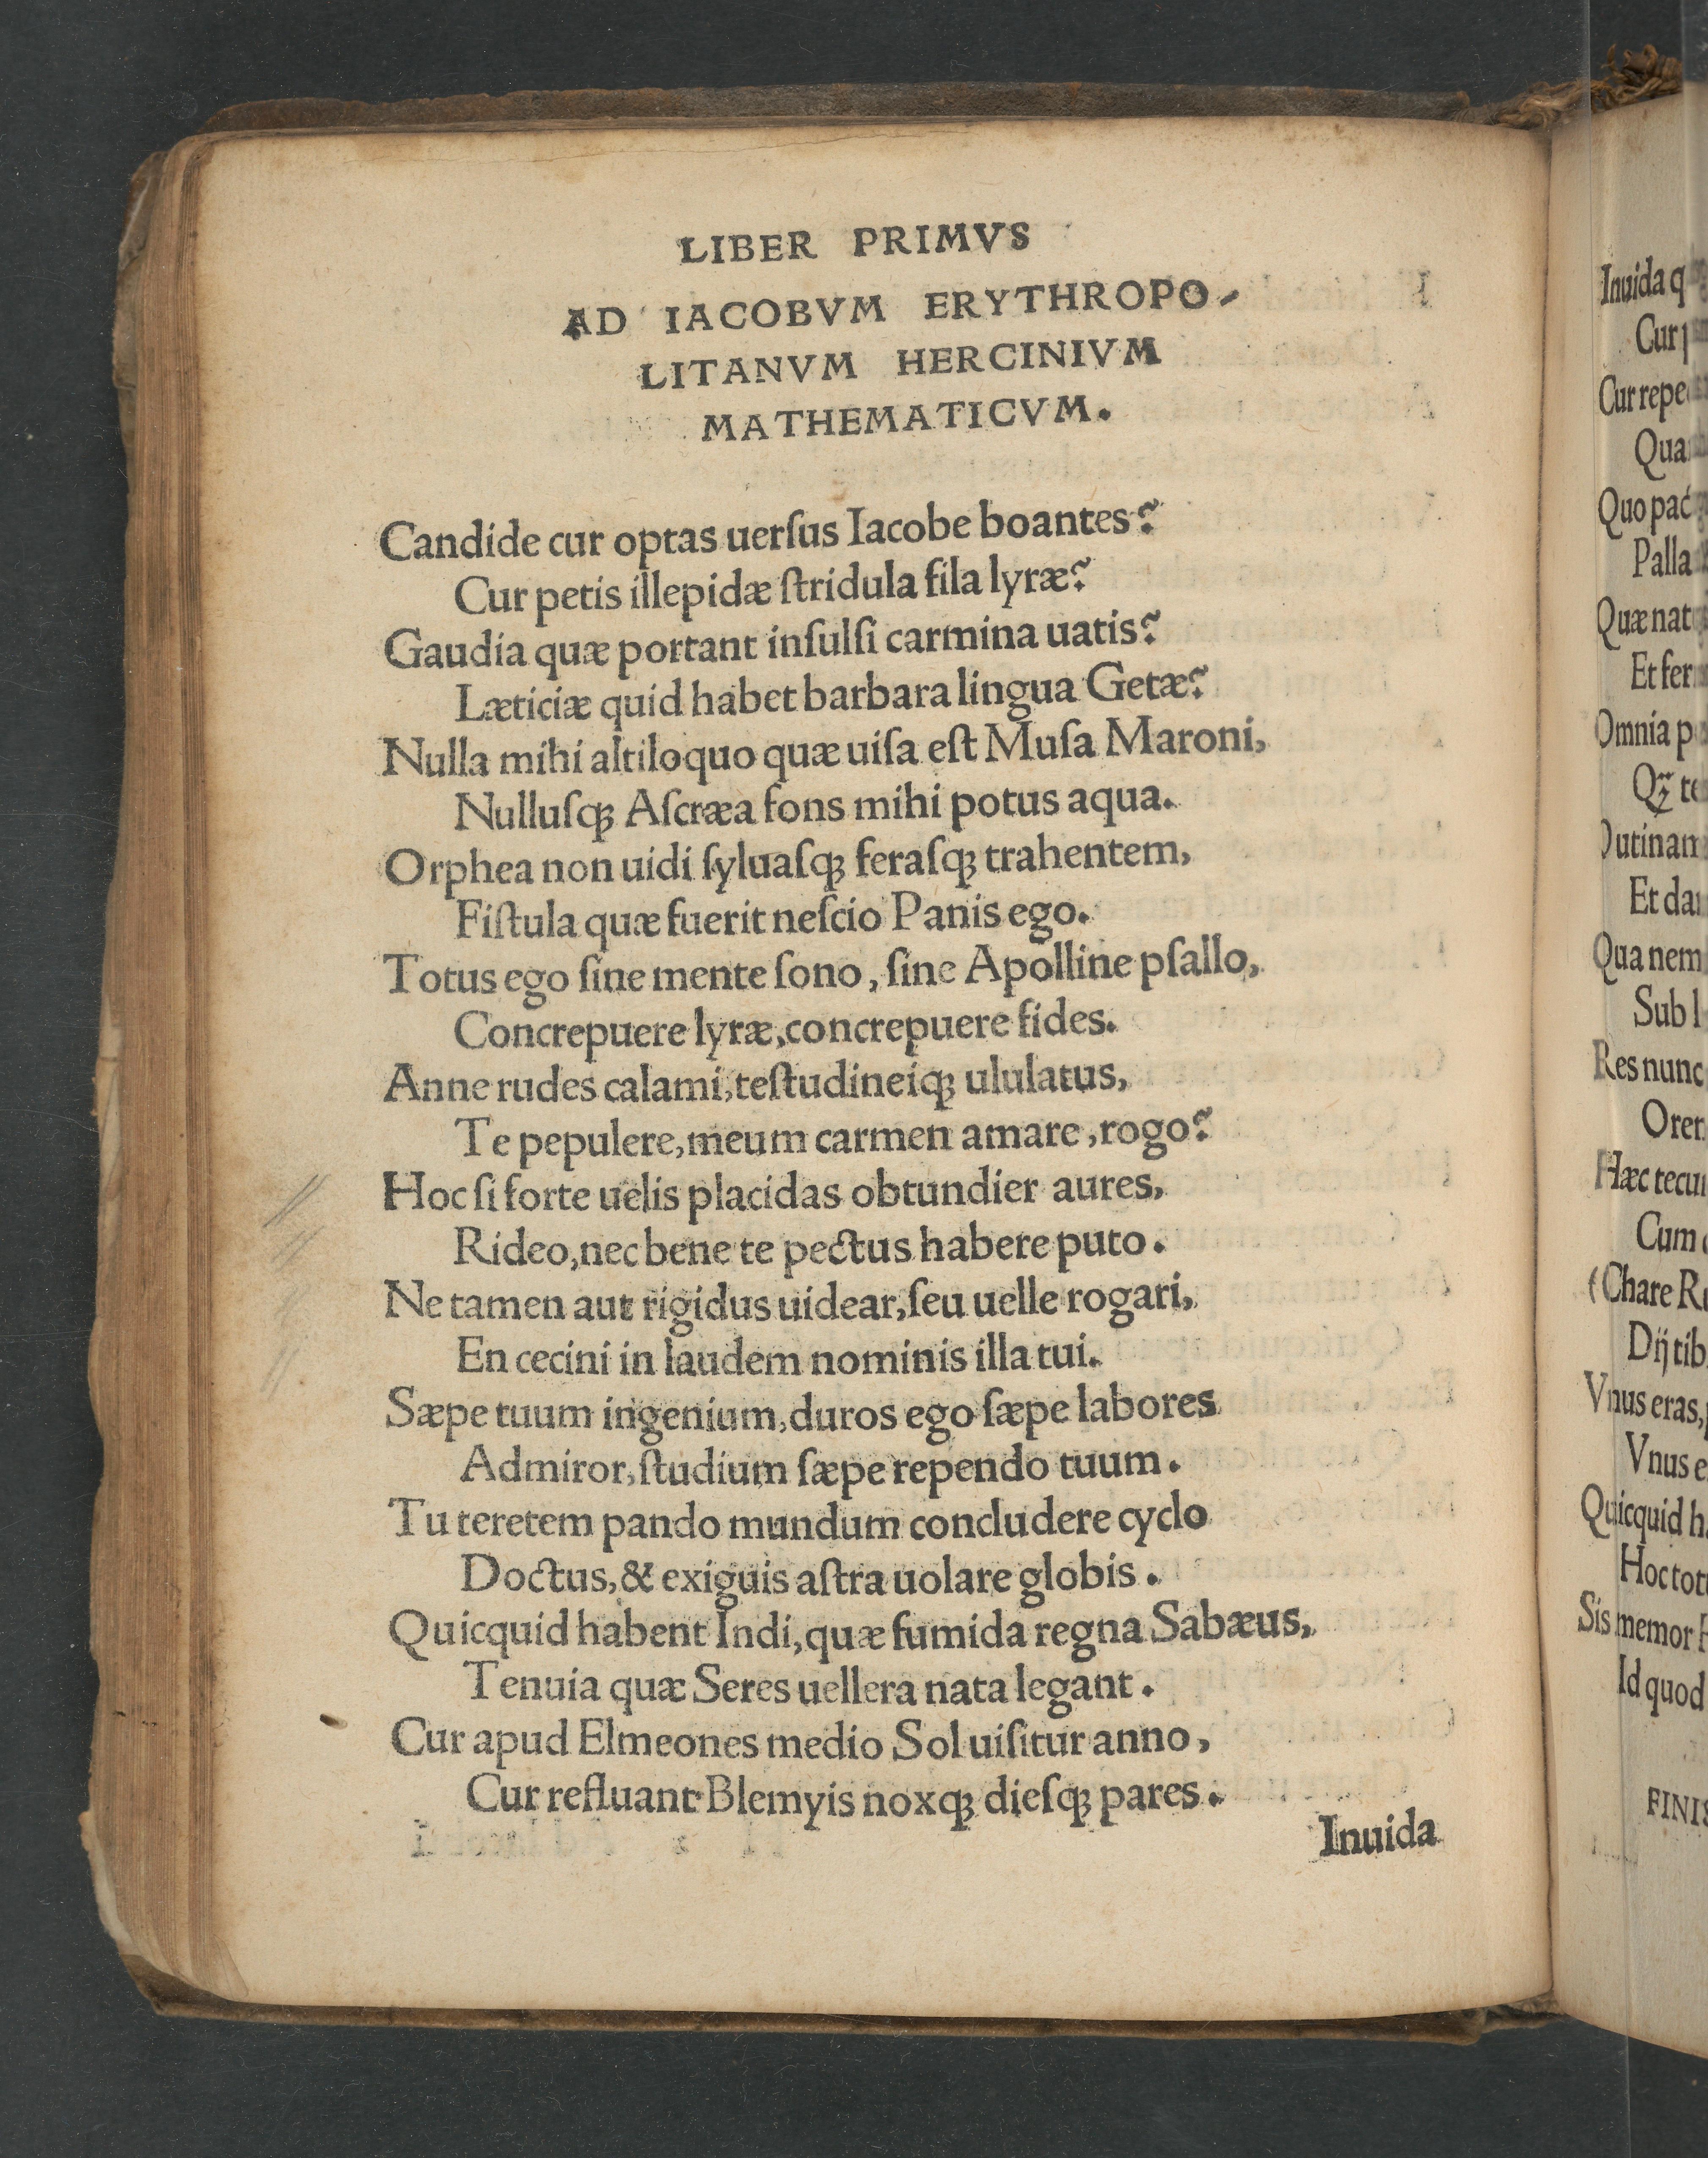 LIBER PRIMVS
AD IACOBVM ERYTHROPO-
LITANVM HERCINIVM
MATHEMATICVM.
Candide cur optas uerſus Iacobe boantes?
Cur petis illepidæ ſtridula fila lyræ?
Gaudia quæ portant inſulſi carmina uatis?
Læticiæ quid habet barbara lingua Getæ?
Nulla mihi altiloquo quæ uiſa eſt Muſa Maroni,
Nulluſqꝫ Aſcræa fons mihi potus aqua.
Orphea non uidi ſyluaſqꝫ feraſqꝫ trahentem,
Fiſtula quæ fuerit neſcio Panis ego.
Totus ego ſine mente ſono, ſine Apolline pſallo,
Concrepuere lyræ, concrepuere fides.
Anne rudes calami, teſtudineiqꝫ ululatus,
Te pepulere, meum carmen amare, rogo?
Hoc ſi forte uelis placidas obtundier aures,
Rideo, nec bene te pectus habere puto.
Ne tamen aut rigidus uidear, ſeu uelle rogari,
En cecini in laudem nominis illa tui.
Sæpe tuum ingenium, duros ego ſæpe labores
Admiror, ſtudium ſæpe rependo tuum.
Tu teretem pando mundum concludere cyclo
Doctus, & exiguis aſtra uolare globis.
Quicquid habent Indi, quæ fumida regna Sabæus,
Tenuia quæ Seres uellera nata legant.
Cur apud Elmeones medio Sol uiſitur anno,
Cur refluant Blemyis noxqꝫ dieſqꝫ pares.
Inuida
Inuida q
Cur
Cur repe
Qua
Quo pac
Palla
Quæ nat
Et fer
Omnia p
te
utinam
Et dar
Qua nem
Sub l
Res nunc
Oret
Hæc tecu
Cum
(Chare R
Dij tib
Vnus eras,
Vnus e
Quicquid h
Hoc tot
Sis memor
Id quod
FINIS